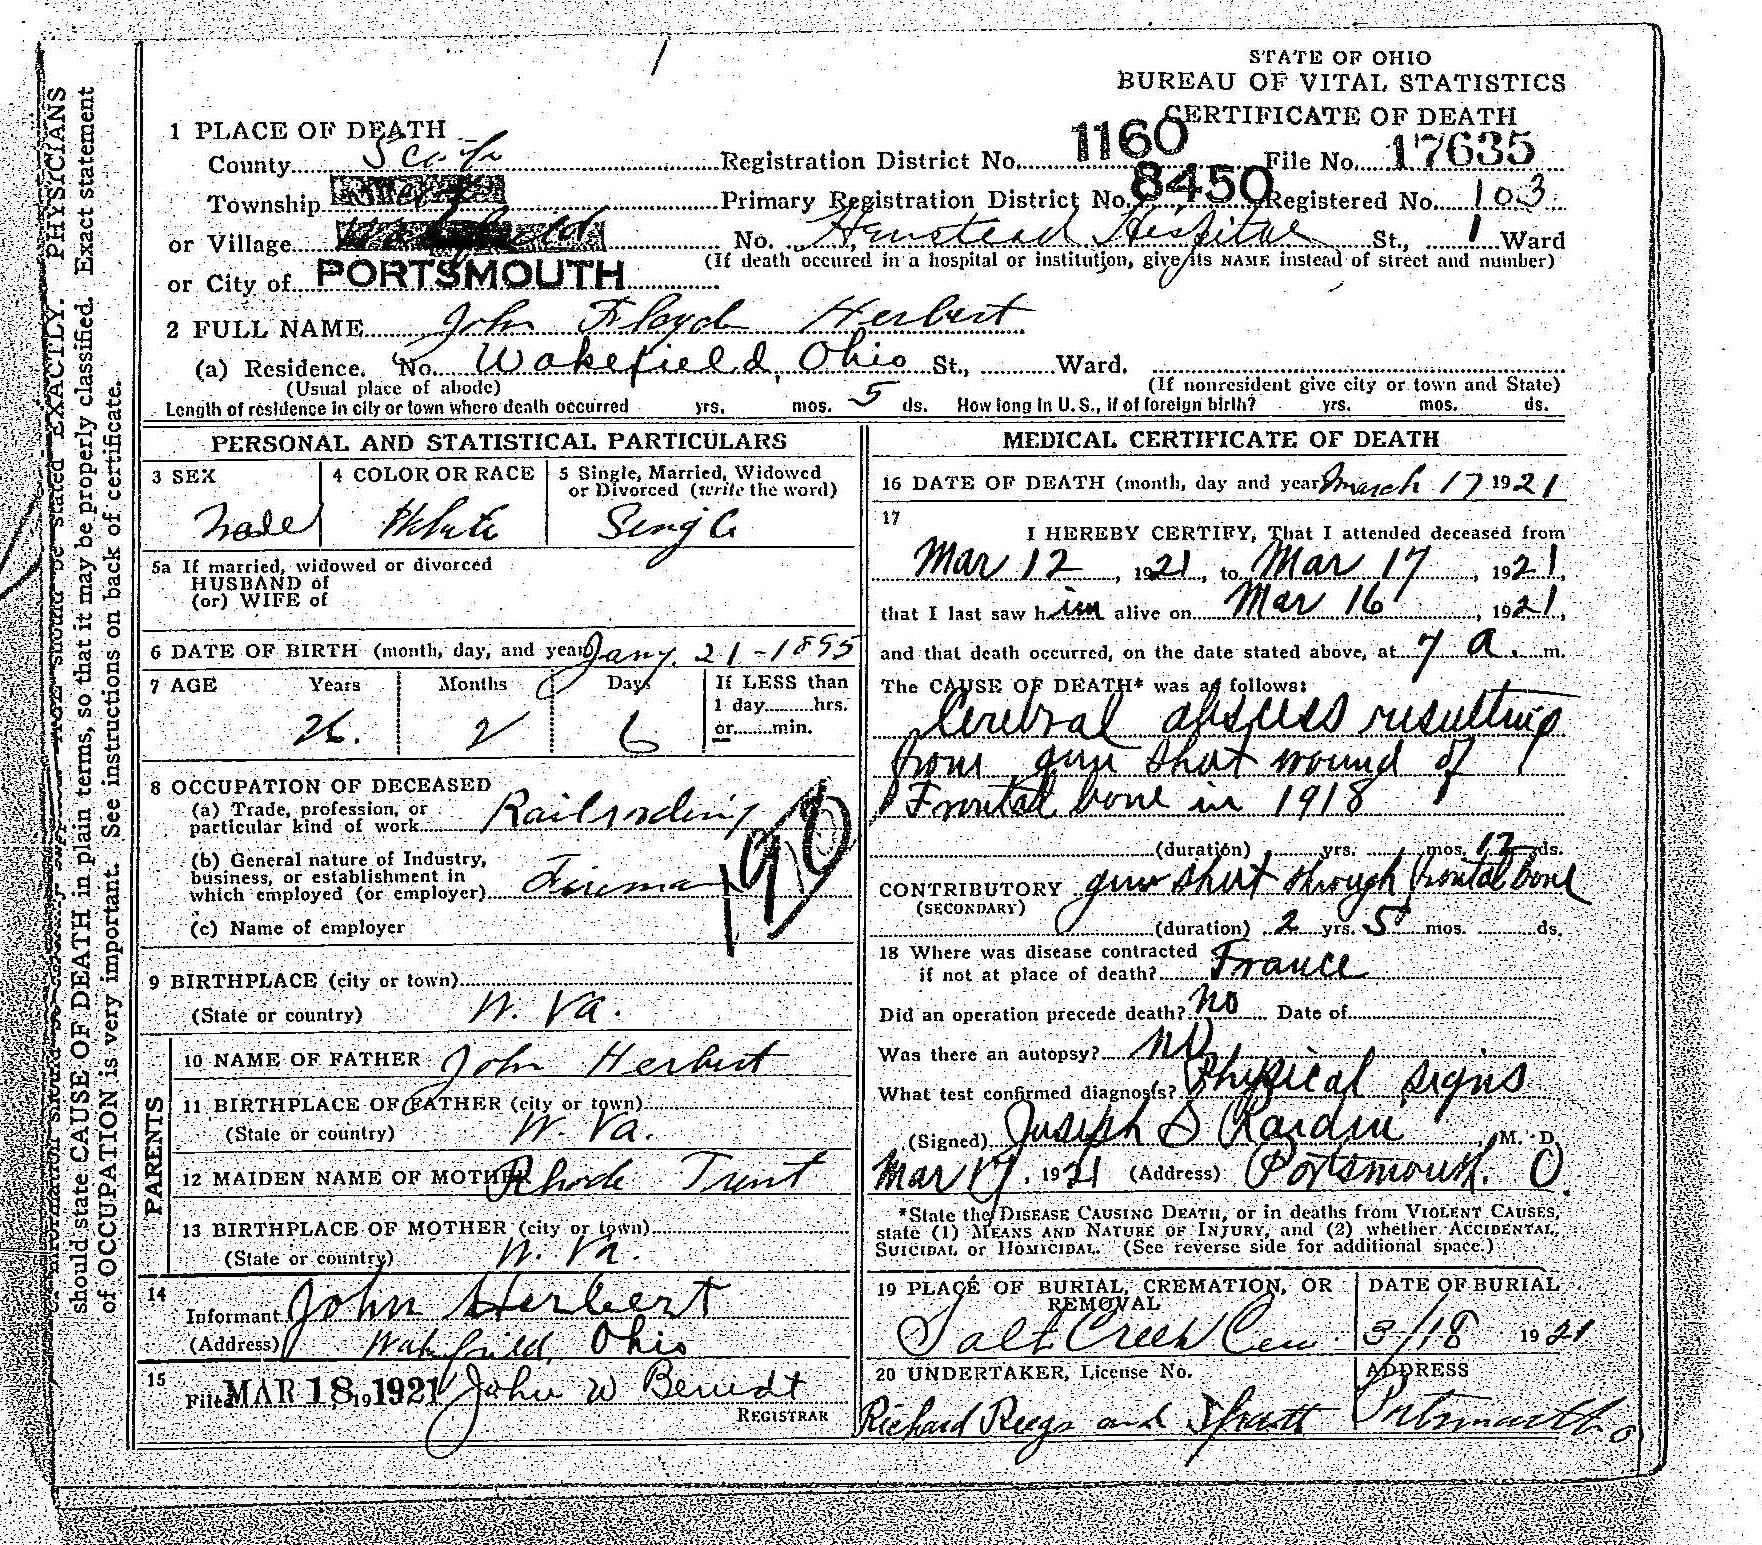 STATE OF OHIO
BUREAU OF VITAL STATISTICS
CERTIFICATE OF DEATH
1 PLACE OF DEATH
County Registration District No. 1160 File No. 17635
Township Primary Registration District No. 8450 Registered No. 103
or Village No. Hempstead Hospital St., 1 Ward
(If death occured in a hospital or institution, give its NAME instead of street and number)
or City of PORTSMOUTH
2 FULL NAME John Floyd Herbert
(a) Residence. No. Wakefield, Ohio St., Ward.
(Usual place of abode) (If nonresident give city or town and State)
Length of residence in city or town where death occurred yrs. mos. 5 ds. How long in U.S., if of foreign birth? yrs. mos. ds.
PERSONAL AND STATISTICAL PARTICULARS
3 SEX 4 COLOR OR RACE 5 Single, Married, Widowed
or Divorced (write the word)
Male White Single
5a If married, widowed or divorced
HUSBAND of
(or) WIFE of
6 DATE OF BIRTH (month, day, and year) Jany. 21-1895
7 AGE Years Months Days If LESS than
1 day hrs.
26. 2 6 or min.
8 OCCUPATION OF DECEASED
(a) Trade, profession, or
particular kind of work Railroading
(b) General nature of Industry,
business, or establishment in
which employed (or employer) Fireman
(c) Name of employer
9 BIRTHPLACE (city or town)
(State or country) W. Va.
PARENTS
10 NAME OF FATHER John Herbert
11 BIRTHPLACE OF FATHER (city or town)
(State or country) W. Va.
12 MAIDEN NAME OF MOTHER Rhode Trent
13 BIRTHPLACE OF MOTHER (city or town)
(State or country) W. Va.
14
Informant John Herbert
(Address) Wakefield, Ohio
15
Filed MAR 18 1921 John W Berndt
REGISTRAR
MEDICAL CERTIFICATE OF DEATH
16 DATE OF DEATH (month, day and year) March 17 1921
17
I HEREBY CERTIFY, That I attended deceased from
Mar 12, 1921, to Mar 17, 1921,
that I last saw him alive on Mar 16, 1921,
and that death occurred, on the date stated above, at 7 a. m.
The CAUSE OF DEATH* was as follows:
Cerebral abscess resulting
from gun shot wound of
Frontal bone in 1918
(duration) yrs. mos. 12 ds.
CONTRIBUTORY gun shot through frontal bone
(SECONDARY)
(duration) 2 yrs. 5 mos. ds.
18 Where was disease contracted
if not at place of death? France
Did an operation precede death? no Date of
Was there an autopsy? no
What test confirmed diagnosis? Physical signs
(Signed) Joseph S Rardin, M. D.
Mar 17. 1921 (Address) Portsmouth. O.
*State the DISEASE CAUSING DEATH, or in deaths from VIOLENT CAUSES,
state (1) MEANS AND NATURE OF INJURY, and (2) whether ACCIDENTAL,
SUICIDAL or HOMICIDAL. (See reverse side for additional space.)
19 PLACE OF BURIAL, CREMATION, OR
REMOVAL
DATE OF BURIAL
Salt Creek Cem. 3/18 1921
20 UNDERTAKER, License No. ADDRESS
Richard Reegs and Portsmouth O
PHYSICIANS
should state CAUSE OF DEATH in plain terms, so that it may be properly classified. Exact statement
of OCCUPATION is very important. See instructions on back of certificate.